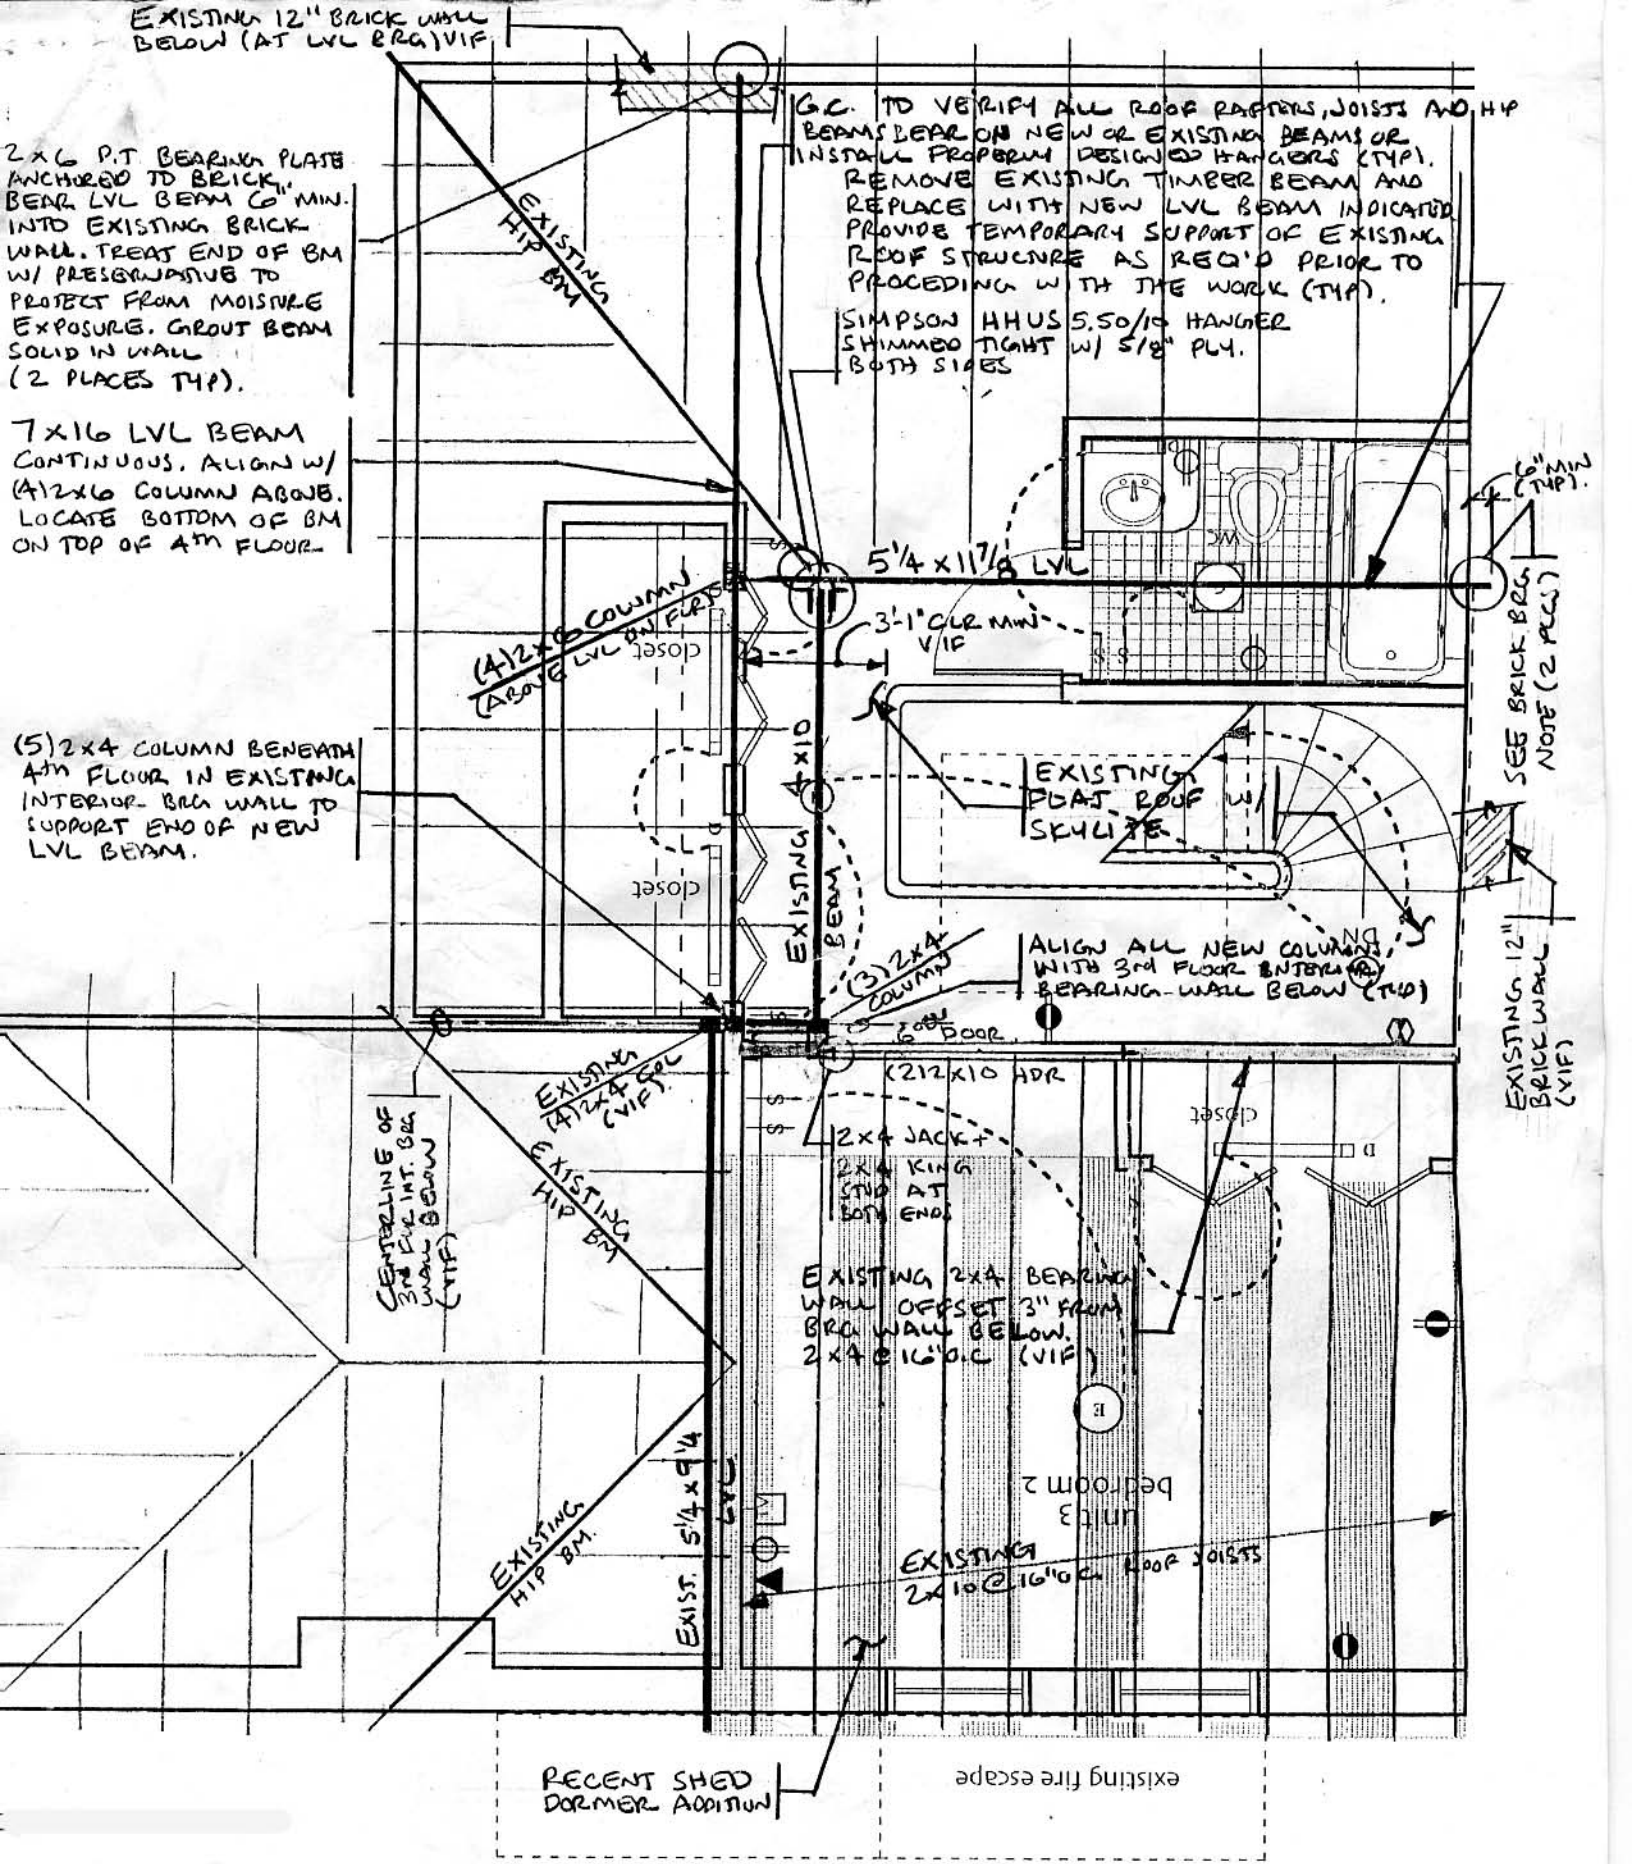 EXISTING 12" BRICK WALL
BELOW (AT LVL BRG) VIF
2x6 P.T BEARING PLATE
ANCHORED TO BRICK.
BEAR LVL BEAM 6" MIN.
INTO EXISTING BRICK
WALL. TREAT END OF BM
W/ PRESERVATIVE TO
PROTECT FROM MOISTURE
EXPOSURE. GROUT BEAM
SOLID IN WALL
(2 PLACES TYP).
7x16 LVL BEAM
CONTINUOUS. ALIGN W/
(4)2x6 COLUMN ABOVE.
LOCATE BOTTOM OF BM
ON TOP OF 4TH FLOOR
(5)2x4 COLUMN BENEATH
4TH FLOOR IN EXISTING
INTERIOR BRG WALL TO
SUPPORT END OF NEW
LVL BEAM.
G.C. TO VERIFY ALL ROOF RAFTERS, JOISTS AND HIP
BEAMS BEAR ON NEW OR EXISTING BEAMS OR
INSTALL PROPERLY DESIGNED HANGERS (TYP).
REMOVE EXISTING TIMBER BEAM AND
REPLACE WITH NEW LVL BEAM INDICATED
PROVIDE TEMPORARY SUPPORT OF EXISTING
ROOF STRUCTURE AS REQ'D PRIOR TO
PROCEDING WITH THE WORK (TYP).
SIMPSON HHUS 5.50/10 HANGER
SHIMMED TIGHT W/ 5/8" PLY.
BOTH SIDES
EXISTING
HIP BM
5 1/4 x 11 7/8 LVL
WC
6" MIN
(TYP).
SEE BRICK BRG
NOTE (2 PLCS)
3'-1" CLR MIN
VIF
(4)2x6 COLUMN
(ABOVE LVL ON FLR)
closet
closet
EXISTING 4x10
BEAM
EXISTING
FLAT ROOF W/
SKYLITE
DN
EXISTING 12"
BRICK WALL
(VIF)
(3)2x4
COLUMN
ALIGN ALL NEW COLUMNS
WITH 3rd FLOOR INTERIOR
BEARING WALL BELOW (TYP)
DOOR
(2)2x10 HDR
EXISTING
(4)2x4 COL
(VIF)
2x4 JACK +
2x4 KING
STUD AT
BOTH ENDS
closet
D
CENTERLINE OF
3rd FLR INT. BRG
WALL BELOW
(VIF)
EXISTING
HIP BM
EXISTING 2x4 BEARING
WALL OFFSET 3" FROM
BRG WALL BELOW.
2x4 @ 16" O.C (VIF)
E
unit 3
bedroom 2
EXIST. 5 1/4 x 9 1/4
LVL
EXISTING
HIP BM.
EXISTING
2x10 @ 16" O.C. ROOF JOISTS
RECENT SHED
DORMER ADDITION
existing fire escape